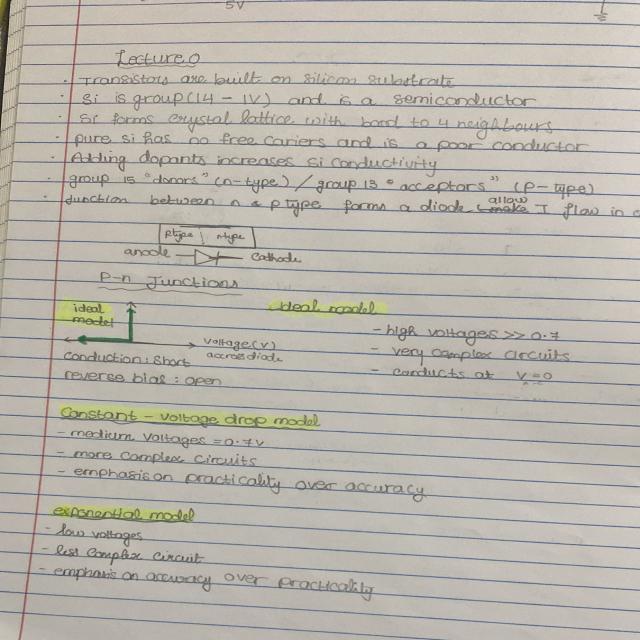 5V
Lecture 0
· Transistors are built on silicon substrate
· Si is group (14 - IV) and is a semiconductor
· Si forms crystal lattice with bond to 4 neighbours
pure si has no free cariers and is a poor conductor
· Adding dopants increases si conductivity
· group 15 "donors" (n-type) / group 13 "acceptors" (p-type)
· Junction between n & p type forms a diode, allow I flow in
ptype | ntype
anode cathode
P-n Junctions
ideal model
voltage(v) accross diode
conduction: short
reverse bias: open
ideal model
- high voltages >> 0.7
- very complex circuits
- conducts at v=0
Constant - voltage drop model
- medium voltages = 0.7v
- more complex circuits
- emphasis on practicality over accuracy
exponential model
- low voltages
- less complex circuit
- emphasis on accuracy over practicality